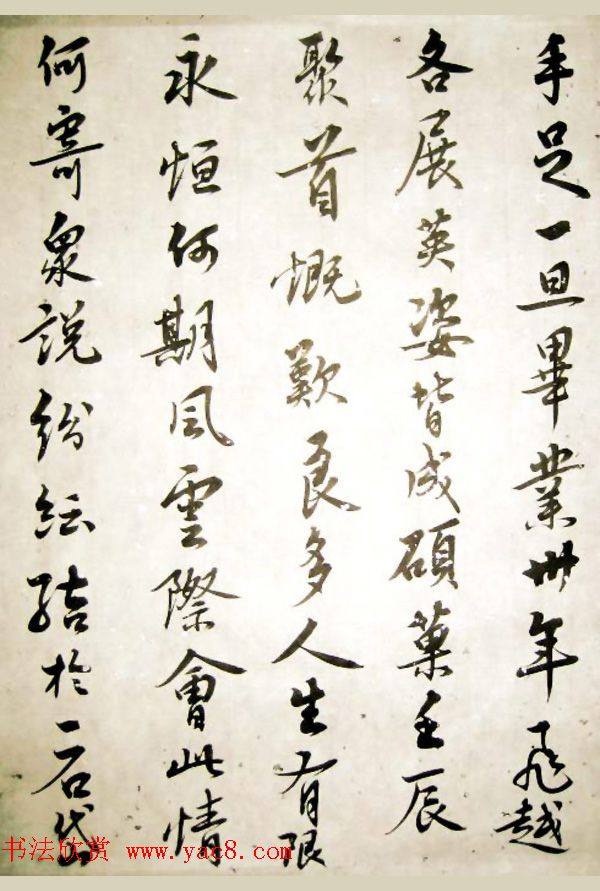 手足一旦畢業卌年飛越
各展英姿皆成碩菓壬辰
聚首慨歎良多人生有限
永恒何期風雲際會此情
何寄衆說紛紜結於一石岱
书法欣赏 www.yac8.com